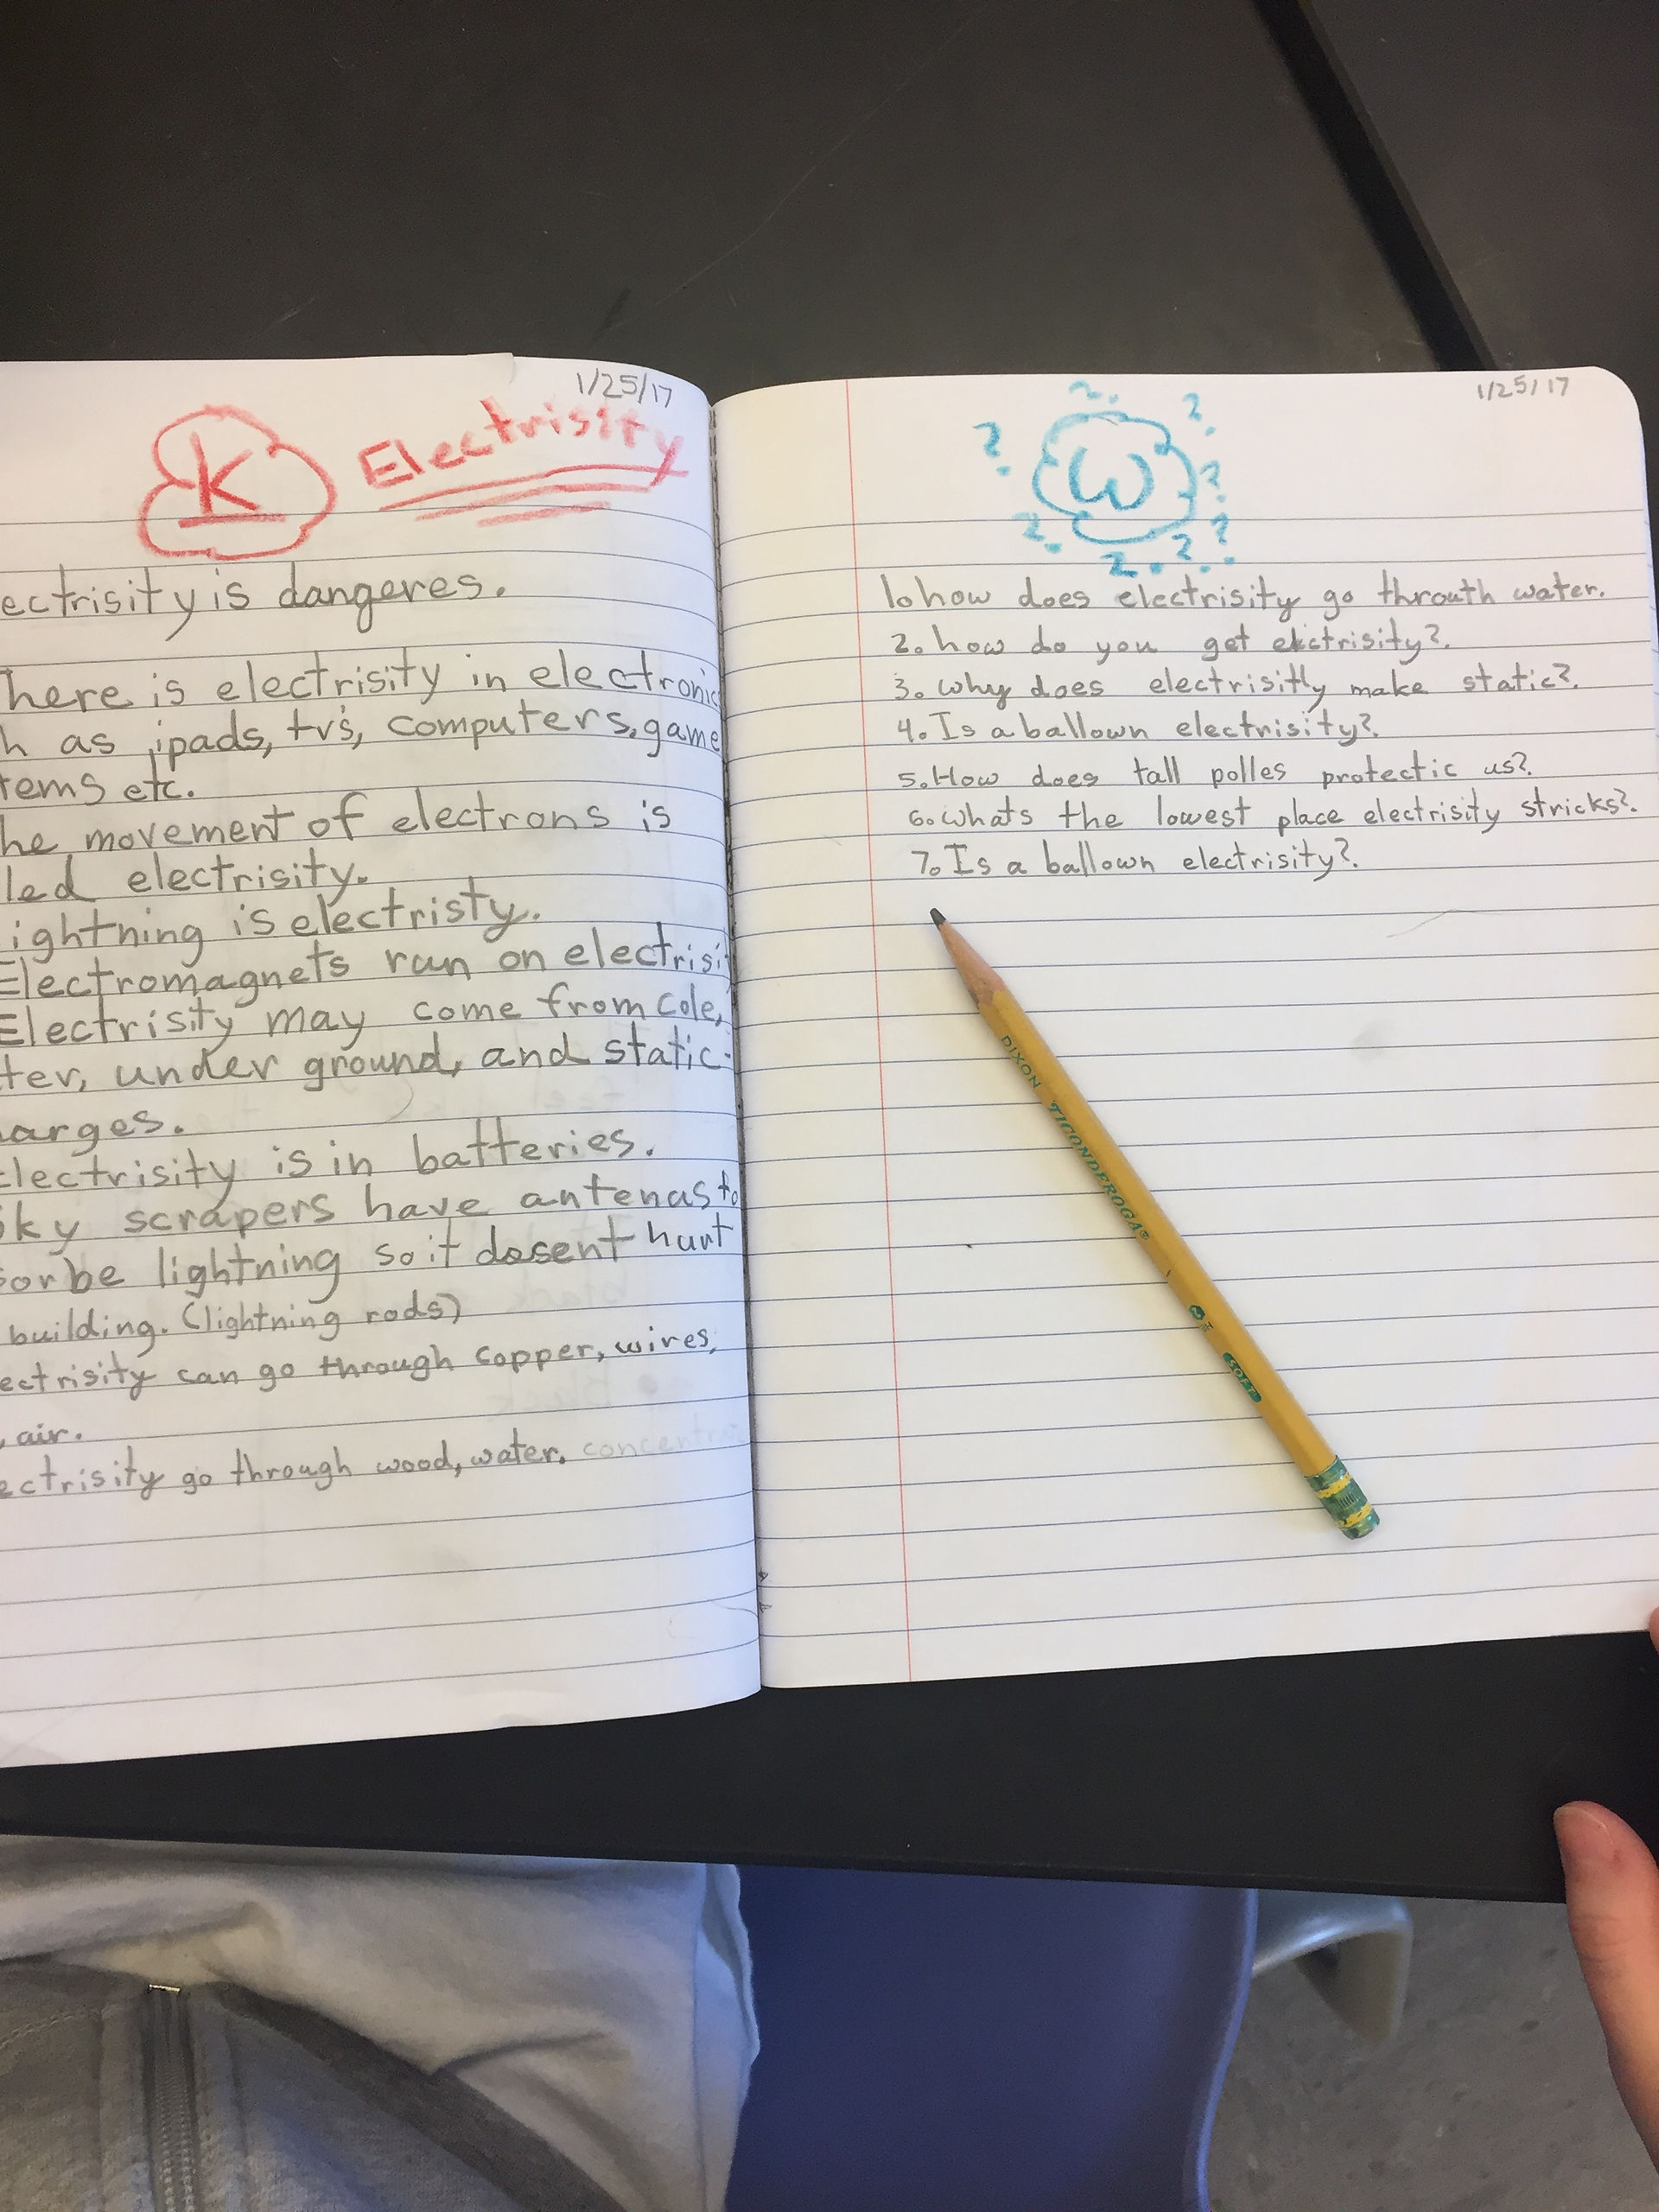 1/25/17
K Electrisity
ectrisity is dangeres.
here is electrisity in electronic
h as ipads, tv's, computers, game
tems etc.
he movement of electrons is
led electrisity.
ightning is electristy.
Electromagnets run on electrisi
Electrisity may come from cole,
ter, under ground, and static-
arges.
Electrisity is in batteries.
ky scrapers have antenas to
sorbe lightning so it dosent hurt
building. (lightning rods)
ectrisity can go through copper, wires,
, air.
ectrisity go through wood, water. concentra
1/25/17
? ? ? ? W ? ? ? ? ?
1. how does electrisity go throuth water.
2. how do you get electrisity?.
3. Why does electrisitly make static?.
4. Is a ballown electrisity?.
5. How does tall polles protectic us?.
6. whats the lowest place electrisity stricks?.
7. Is a ballown electrisity?.
DIXON TICONDEROGA® 2 SOFT